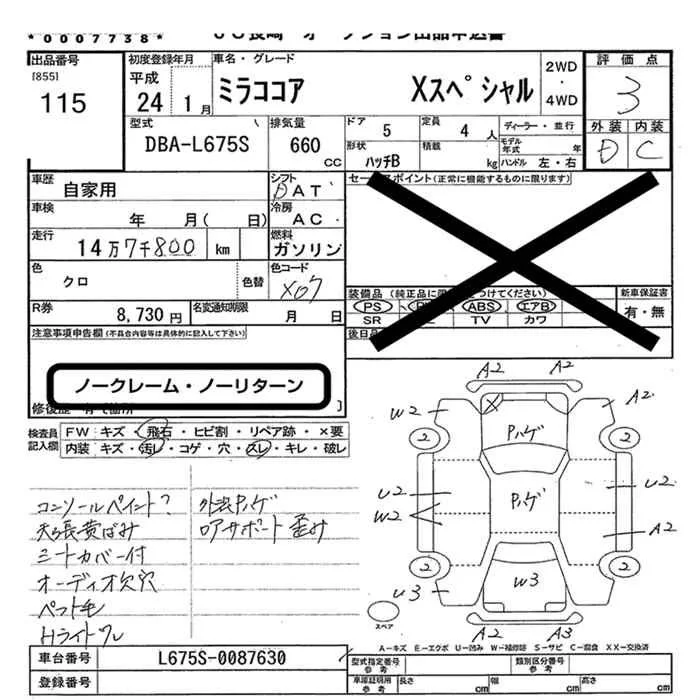 *0007738*
出品番号
[855]
115
初度登録年月
平成
24 1月
車名・グレード
ミラココア Xスペシャル
2WD
・
4WD
評価点
3
外装 内装
D C
型式
DBA-L675S
排気量
660
CC
ドア 5
定員 4人
ディーラー・並行
形状 ハッチB
積載 kg
モデル年式 年
ハンドル 左・右
車歴
自家用
シフト
DAT
車検
年 月( 日)
冷房
AC
走行
14万7千800 km
燃料
ガソリン
色
クロ
色替
色コード
X07
R券
8,730円
名変通知期限
月 日
セールスポイント(正常に機能するものに限ります)
装備品
PS ABS エアB
SR TV カワ
新車保証書
有・無
注意事項申告欄(不具合内容等は具体的に記入して下さい)
ノークレーム・ノーリターン
検査員記入欄
FW キズ・飛石・ヒビ割・リペア跡・×要
内装 キズ・汚レ・コゲ・穴・スレ・キレ・破レ
コンソールペイント?
天張黄ばみ
シートカバー付
オーディオ欠穴
ペット毛
Hライトクル
外装Pハゲ
コアサポート歪み
A2 A2
W2 A2
2 2
Pハゲ
Pハゲ
U2 U2
W2 A2
2 2
U3 W3
A2 A3
スペア
A-キズ E-エクボ U-凹み W-補修跡 S-サビ C-腐食 XX-交換済
車台番号
L675S-0087630
型式指定番号
参考
類別区分番号
参考
車庫証明用
参考
長さ cm
幅 cm
高さ cm